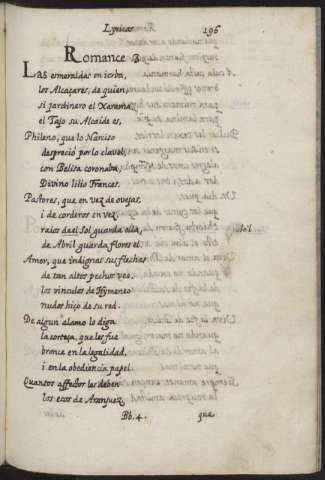 Lyricos 196
Romance 3.
Las esmeraldas en ierba,
los Alcaçares, de quien,
si jardinero el Xarama,
el Tajo su Alcaide es,
Phileno, que lo Narciso
despreció por lo clavel,
con Belisa coronaba,
Divino lilio Frances.
Pastores, que en vez de ovejas,
i de corderos en vez,
raios de el Sol guarda ella,
de Abril guarda flores el.
Amor, que indignas sus flechas
de tan altos pechos veo,
los vinculos de Hymeneo
nudos hizo de su red.
De algun alamo lo diga
la corteza, que les fue
bronce en la legalidad,
i en la obediencia papel.
Quantos affectos les deben
los ecos de Aranjuez,
Bb. 4. que